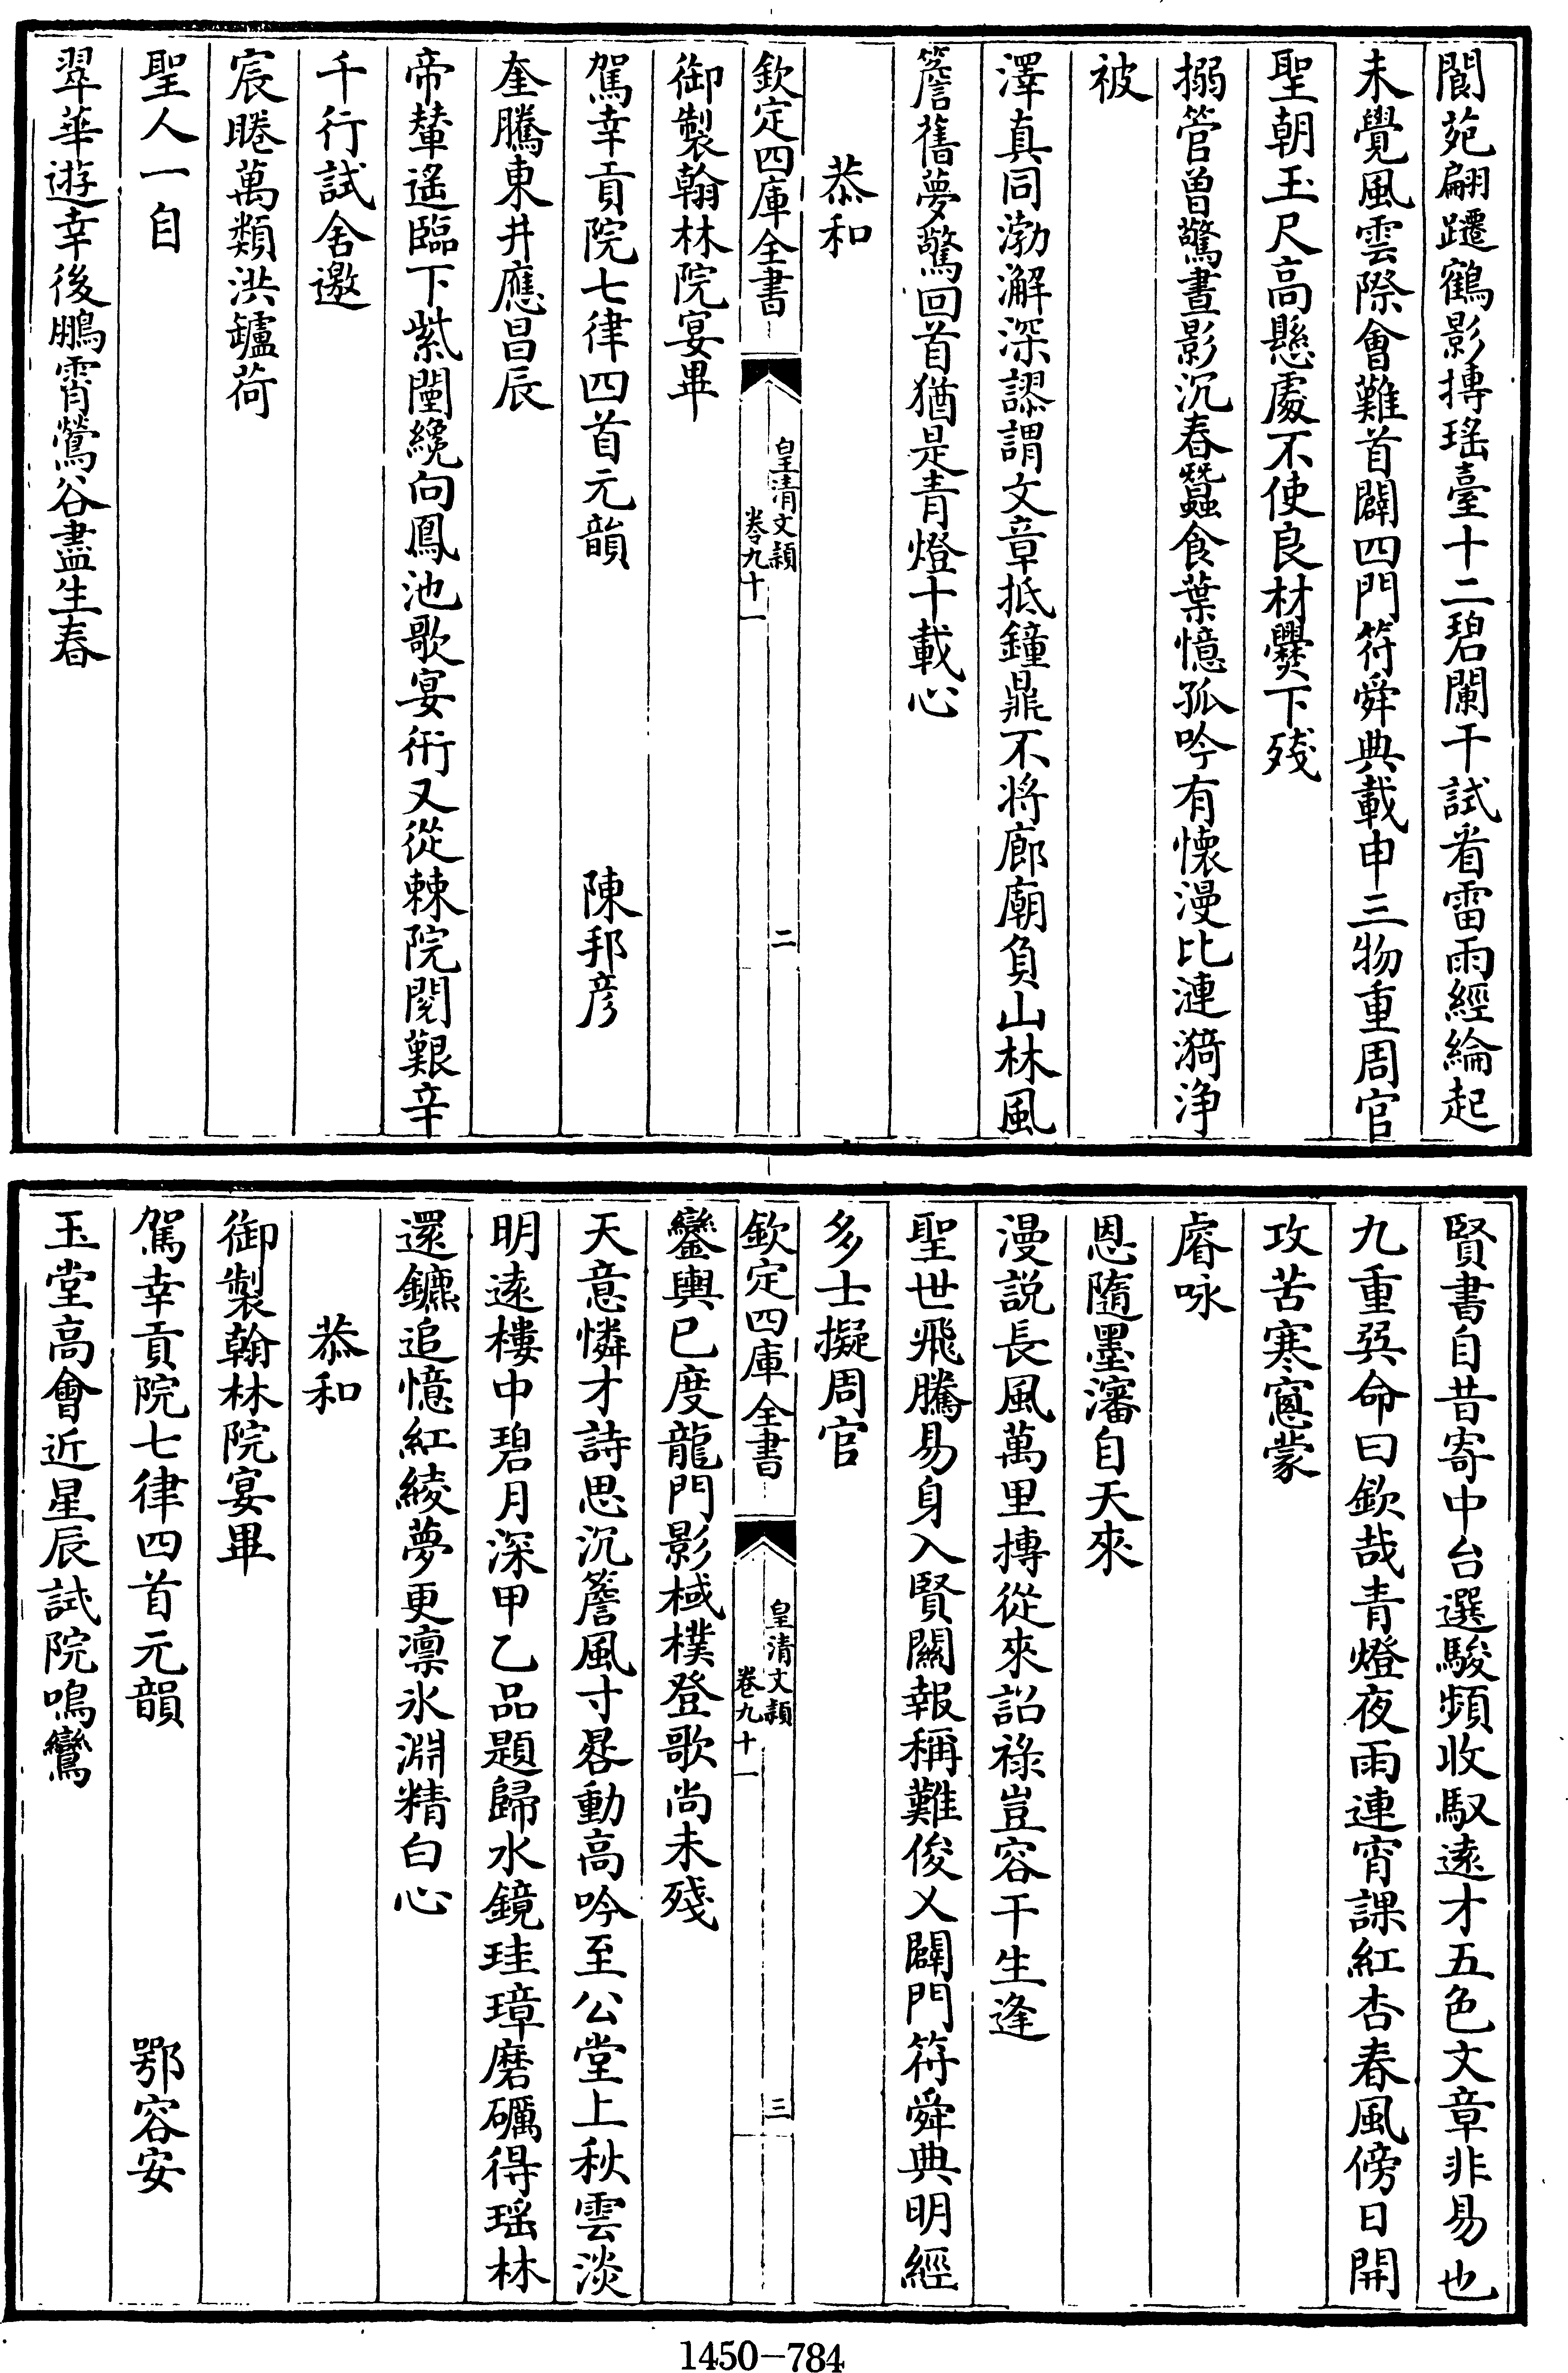 閬苑翩躚鶴影摶瑤臺十二碧闌干試看雷雨經綸起
未覺風雲際會難首闢四門符舜典載申三物重周官
聖朝玉尺高懸處不使良材爨下殘
搦管曾驚晝影沉春蠶食葉憶孤吟有懷漫比漣漪淨
被
澤真同渤澥深謬謂文章抵鐘鼎不將廊廟負山林風
簷舊夢驚回首猶是青燈十載心
恭和
欽定四庫全書
皇清文穎
卷九十一
二
御製翰林院宴畢
駕幸貢院七律四首元韻 陳邦彦
奎騰東井應昌辰
帝輦遙臨下紫闉纔向鳳池歌宴衎又從棘院閱艱辛
千行試舍邀
宸睠萬類洪鑪荷
聖人一自
翠華遊幸後鵬霄鶯谷盡生春
賢書自昔寄中台選駿頻收馭遠才五色文章非易也
九重巽命曰欽哉青燈夜雨連宵課紅杏春風傍日開
攻苦寒窻蒙
睿咏
恩隨墨瀋自天來
漫説長風萬里摶從來詔祿豈容干生逢
聖世飛騰易身入賢關報稱難俊乂闢門符舜典明經
多士擬周官
欽定四庫全書
皇清文穎
卷九十一
三
鑾輿已度龍門影棫樸登歌尚未殘
天意憐才詩思沉簷風寸晷動高吟至公堂上秋雲淡
明遠樓中碧月深甲乙品題歸水鏡珪璋磨礪得瑶林
還鑣追憶紅綾夢更凛氷淵精白心
恭和
御製翰林院宴畢
駕幸貢院七律四首元韻 鄂容安
玉堂高會近星辰試院鳴鸞
1450-784